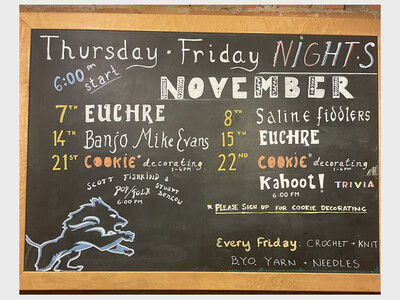 Thursday · Friday NIGHTS
6:00 PM start
NOVEMBER
7TH EUCHRE
14TH Banjo Mike Evans
21ST COOKIE* decorating
1-4PM
SCOTT FISKIND &
POP/FOLK STUART BENLOW
6:00 PM
8TH Saline fiddlers
15TH EUCHRE
22ND COOKIE* decorating
1-4PM
Kahoot! TRIVIA
6:00 PM
* PLEASE SIGN UP FOR COOKIE DECORATING
Every Friday: CROCHET + KNIT
B.Y.O. YARN + NEEDLES